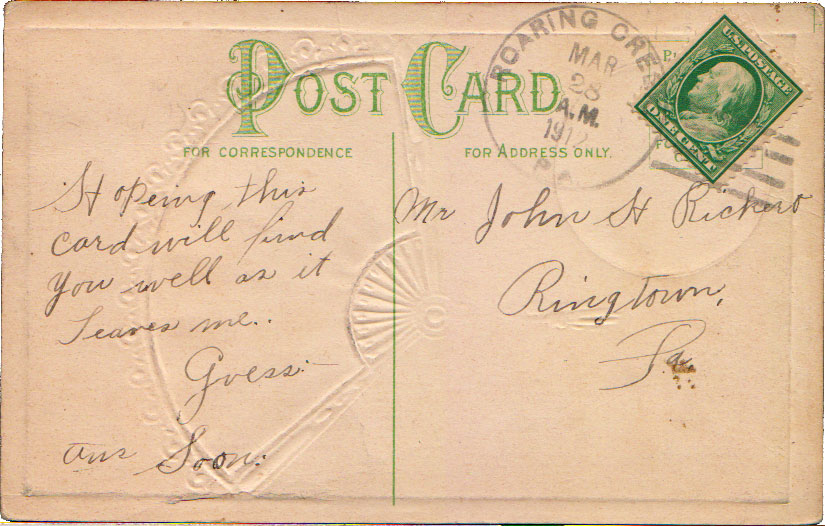 POST CARD
FOR CORRESPONDENCE
FOR ADDRESS ONLY.
ROARING CREEK
MAR
28
A.M.
1912
PA.
U.S. POSTAGE
ONE CENT
Hopeing this
card will find
you well as it
leaves me.
Guess:
ans Soon:
Mr John H Rickert
Ringtown,
Pa.